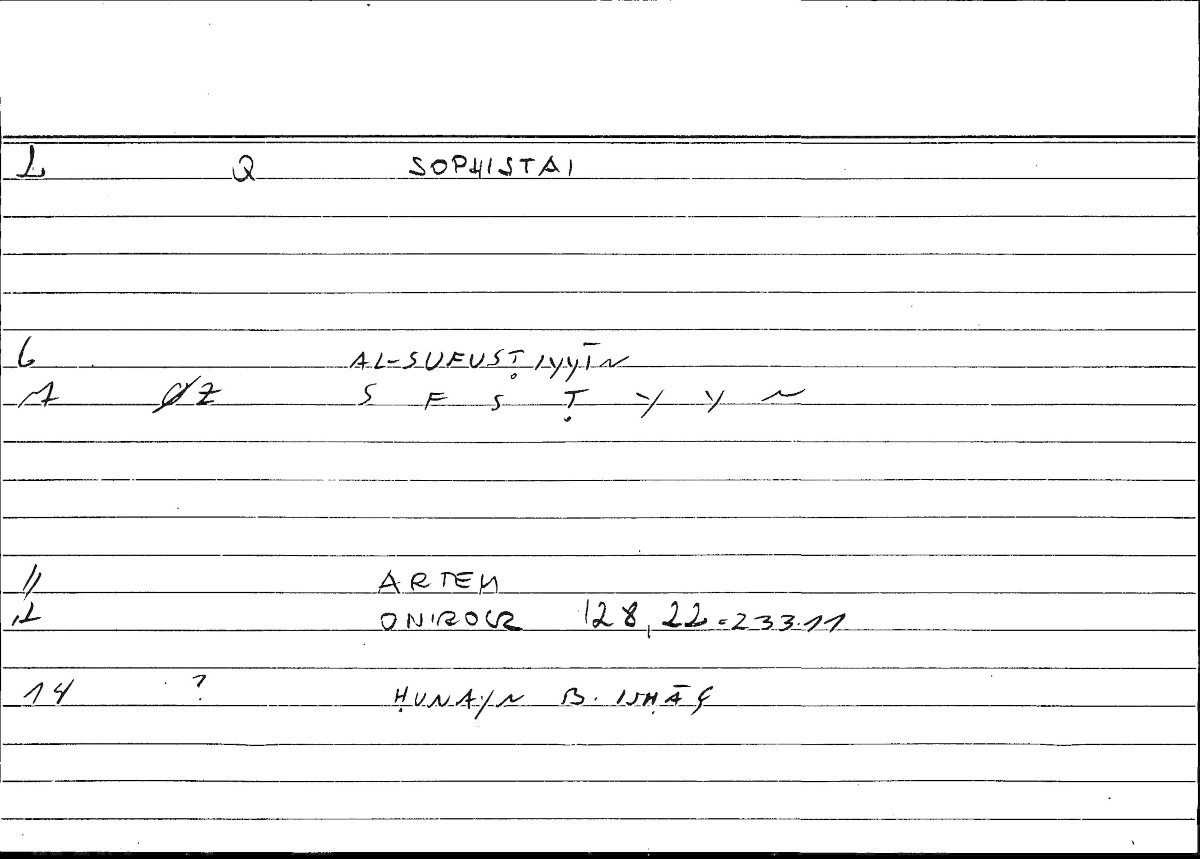 1 Q SOPHISTAI
6 AL-SUFUSṬIYYĪN
7 Z S F S Ṭ Y Y N
11 ARTEM
12 ONIROCR 128,22=233.11
14 ? ḤUNAYN B. ISḤĀQ